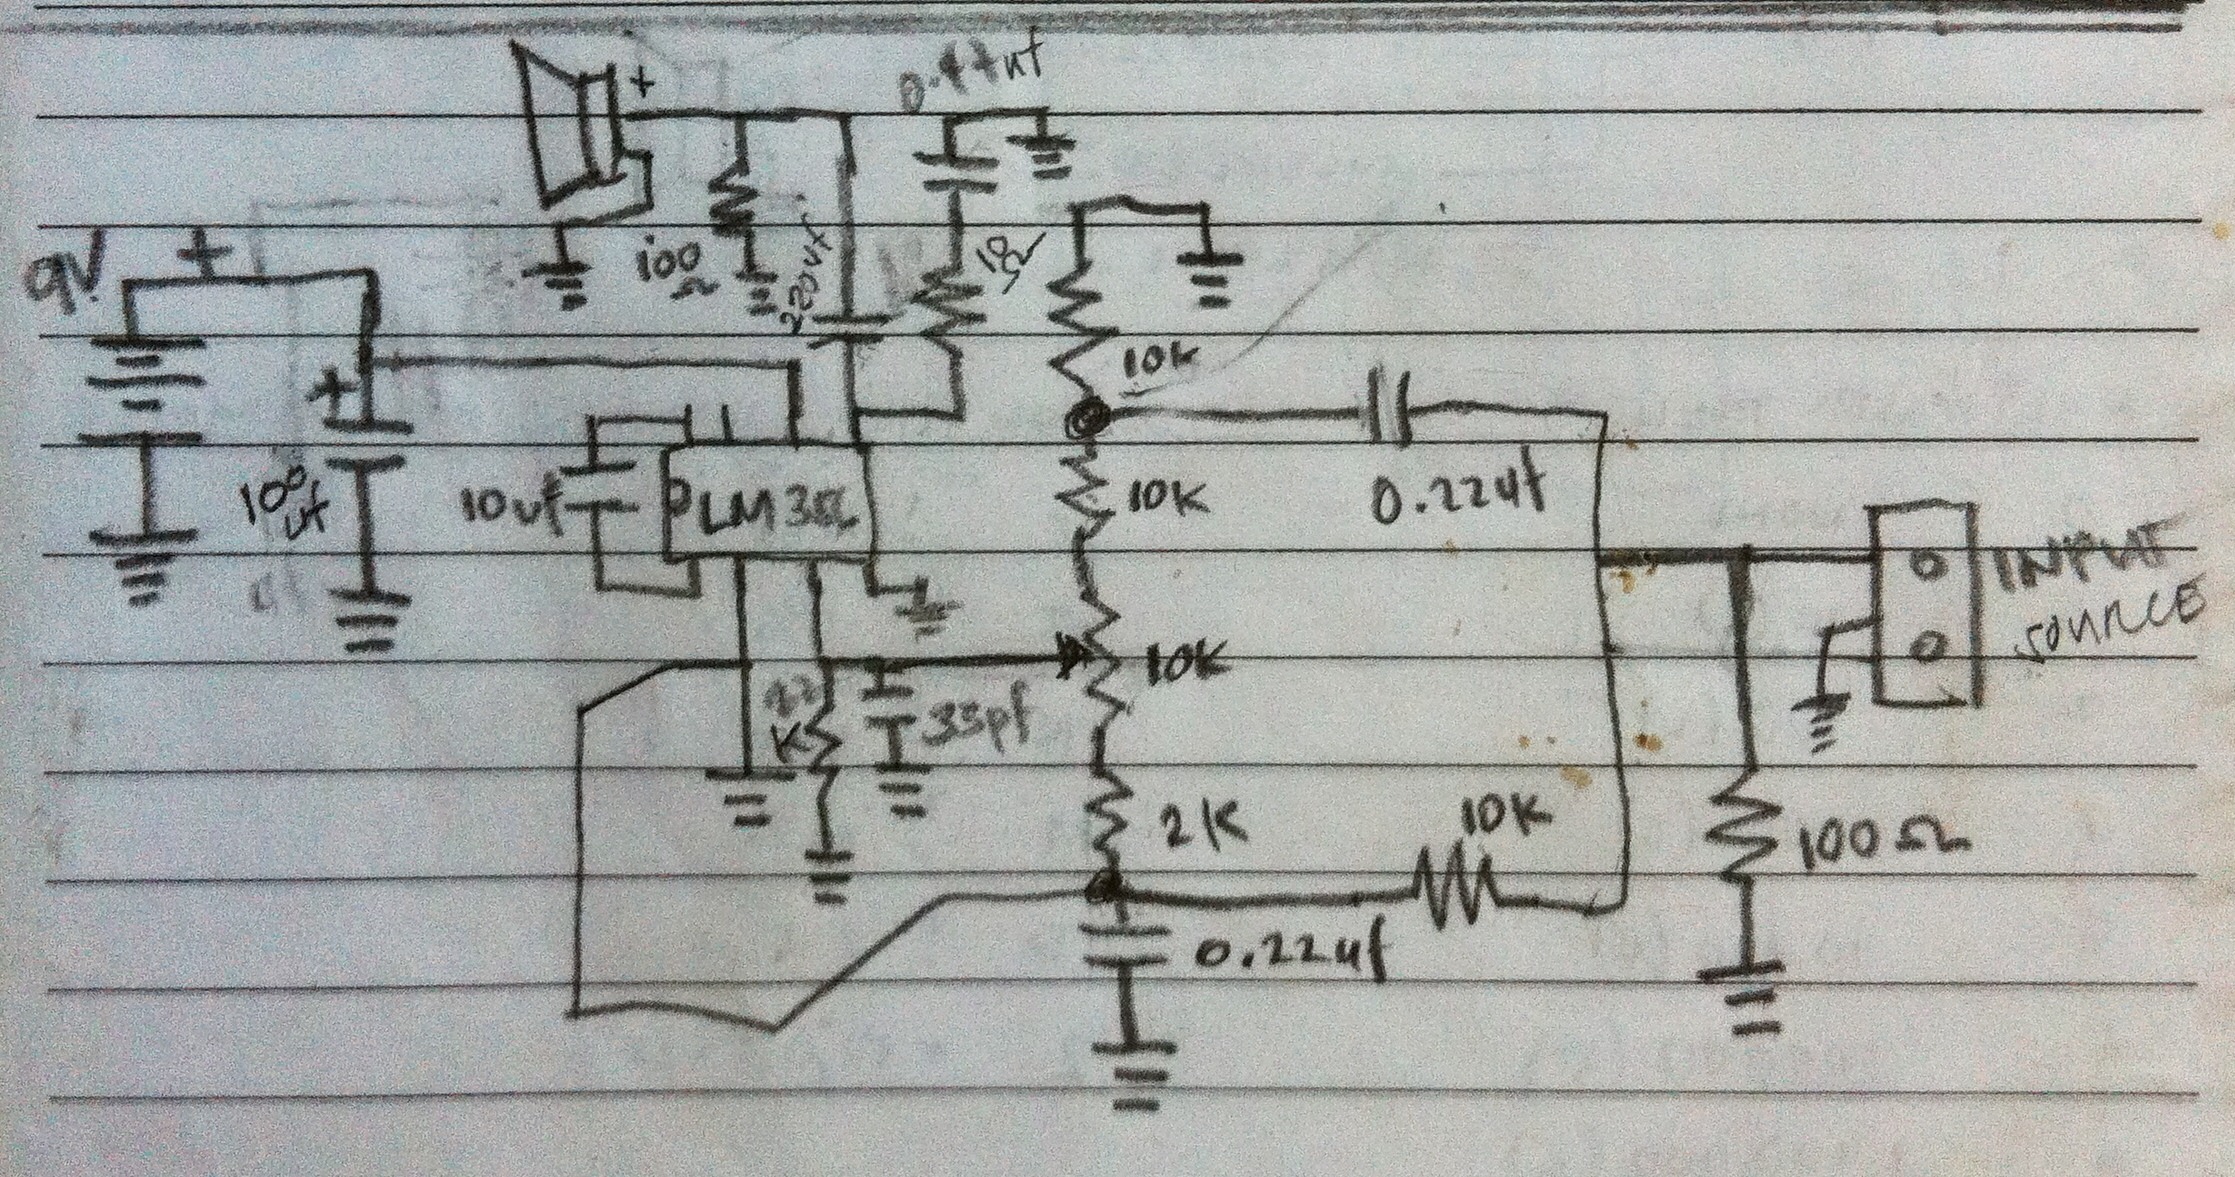 +
0.47uf
9V
+
100
Ω
220uf
10Ω
10K
+
100
uf
10uf
LM386
10K
0.22uf
INPUT
SOURCE
10K
K
33pf
2K
10K
100Ω
0.22uf